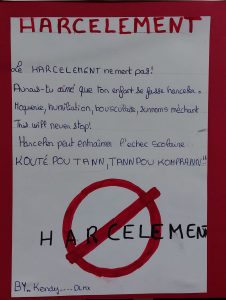 HARCELEMENT
Le HARCELEMENT ne mert pas!
Aurais-tu aimé que ton enfant se fasse harceler.
Moquerie, humiliation, bousculade, surnoms méchant
This will never stop!
Harceler peut entraîner l'echec scolaire
KOUTÉ POU TANN, TANN POU KOMPRANN!!
HARCELEMEN
BY.. Kendy